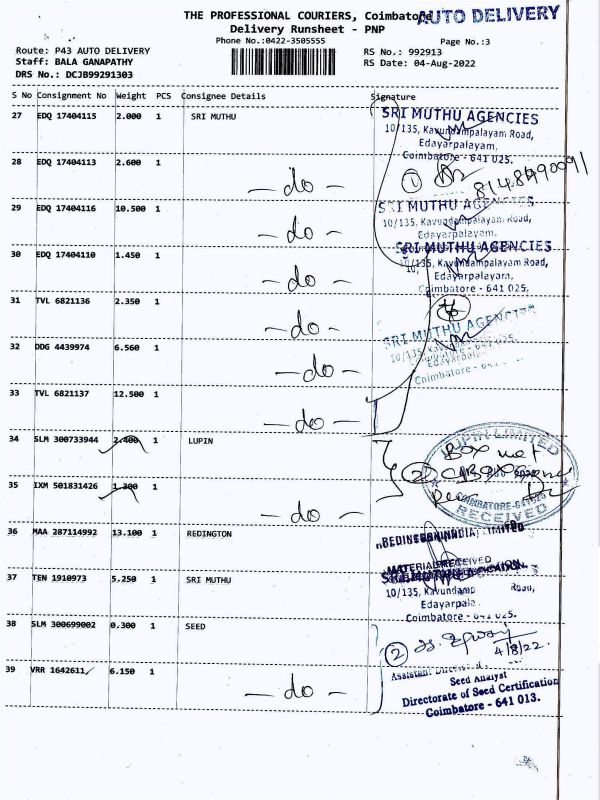 THE PROFESSIONAL COURIERS, Coimbatore
AUTO DELIVERY
Delivery Runsheet - PNP
Phone No.:0422-3505555
Page No.:3
Route: P43 AUTO DELIVERY
RS No.: 992913
Staff: BALA GANAPATHY
RS Date: 04-Aug-2022
DRS No.: DCJB99291303
S No Consignment No Weight PCS Consignee Details Signature
27 EDQ 17404115 2.000 1 SRI MUTHU
SRI MUTHU AGENCIES
10/135, Kavundampalayam Road,
Edayarpalayam,
Coimbatore - 641 025.
28 EDQ 17404113 2.600 1
- do -
1
29 EDQ 17404116 10.500 1
- do -
SRI MUTHU AGENCIES
10/135, Kavundampalayam Road,
Edayarpalayam,
30 EDQ 17404110 1.450 1
- do -
SRI MUTHU AGENCIES
10/135, Kavundampalayam Road,
Edayarpalayam,
Coimbatore - 641 025.
31 TVL 6821136 2.350 1
- do -
SRI MUTHU AGENCIES
10/135,
Edayarpala
Coimbatore -
32 DDG 4439974 6.560 1
- do -
33 TVL 6821137 12.500 1
- do -
34 SLM 300733944 2.400 1 LUPIN
LUPIN LIMITED
Box not
2
COIMBATORE-641020
RECEIVED
35 IXM 501831426 1.300 1
- do -
36 MAA 287114992 13.100 1 REDINGTON
REDINGTON INDIA LIMITED
MATERIAL RECEIVED
37 TEN 1910973 5.250 1 SRI MUTHU
10/135, Kavundamp Road,
Edayarpala
Coimbatore - 641 025.
38 SLM 300699002 0.300 1 SEED
2
4/8/22.
39 VRR 1642611 6.150 1
- do -
Assistant
Seed Analyst
Directorate of Seed Certification
Coimbatore - 641 013.